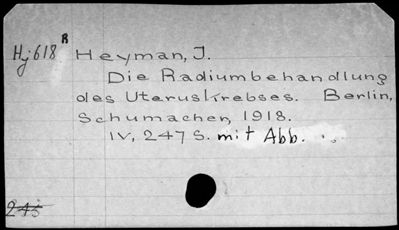 Hj618 R Heyman, J.
Die Radiumbehandlung
des Uteruskrebses. Berlin,
Schumacher, 1918.
IV, 247 S. mit Abb.
245